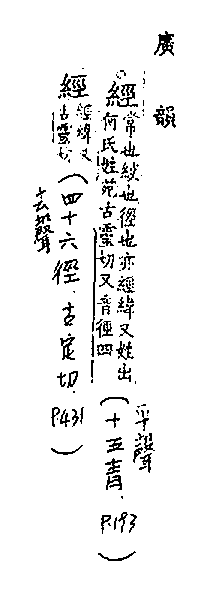 廣韻
經 常也絞也徑也亦經緯又姓出
何氏姓苑古靈切又音徑四
(十五青、P.193)
平聲
經 經緯又
古靈切
(四十六徑、古定切、P.431)
去聲